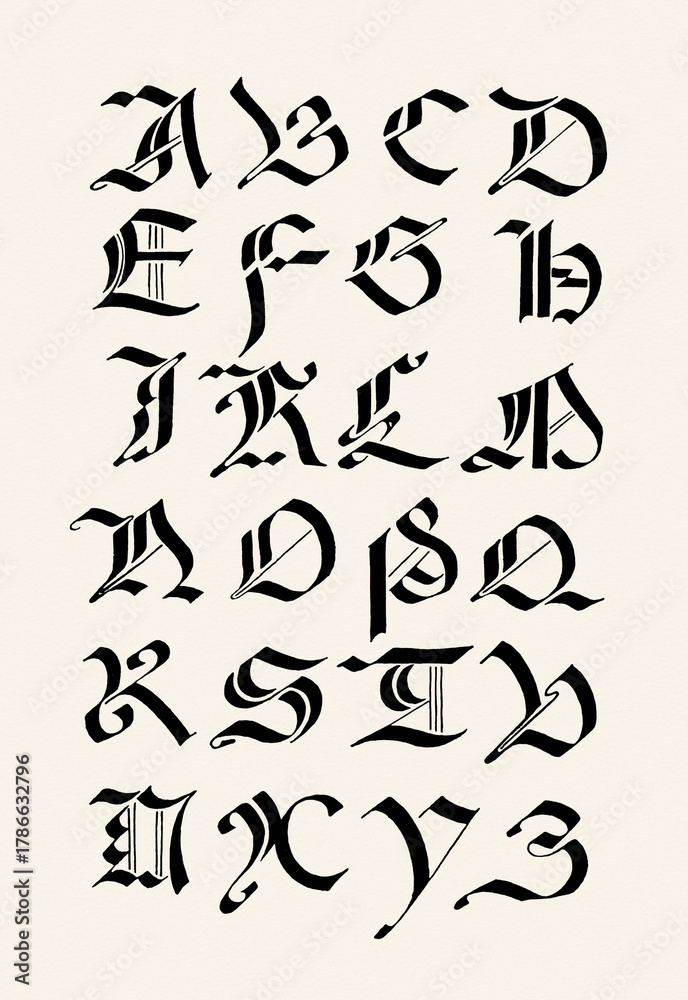 A B C D
E F G H
I K L M
N O P Q
R S T V
X Y Z
Adobe Stock | #1786632796